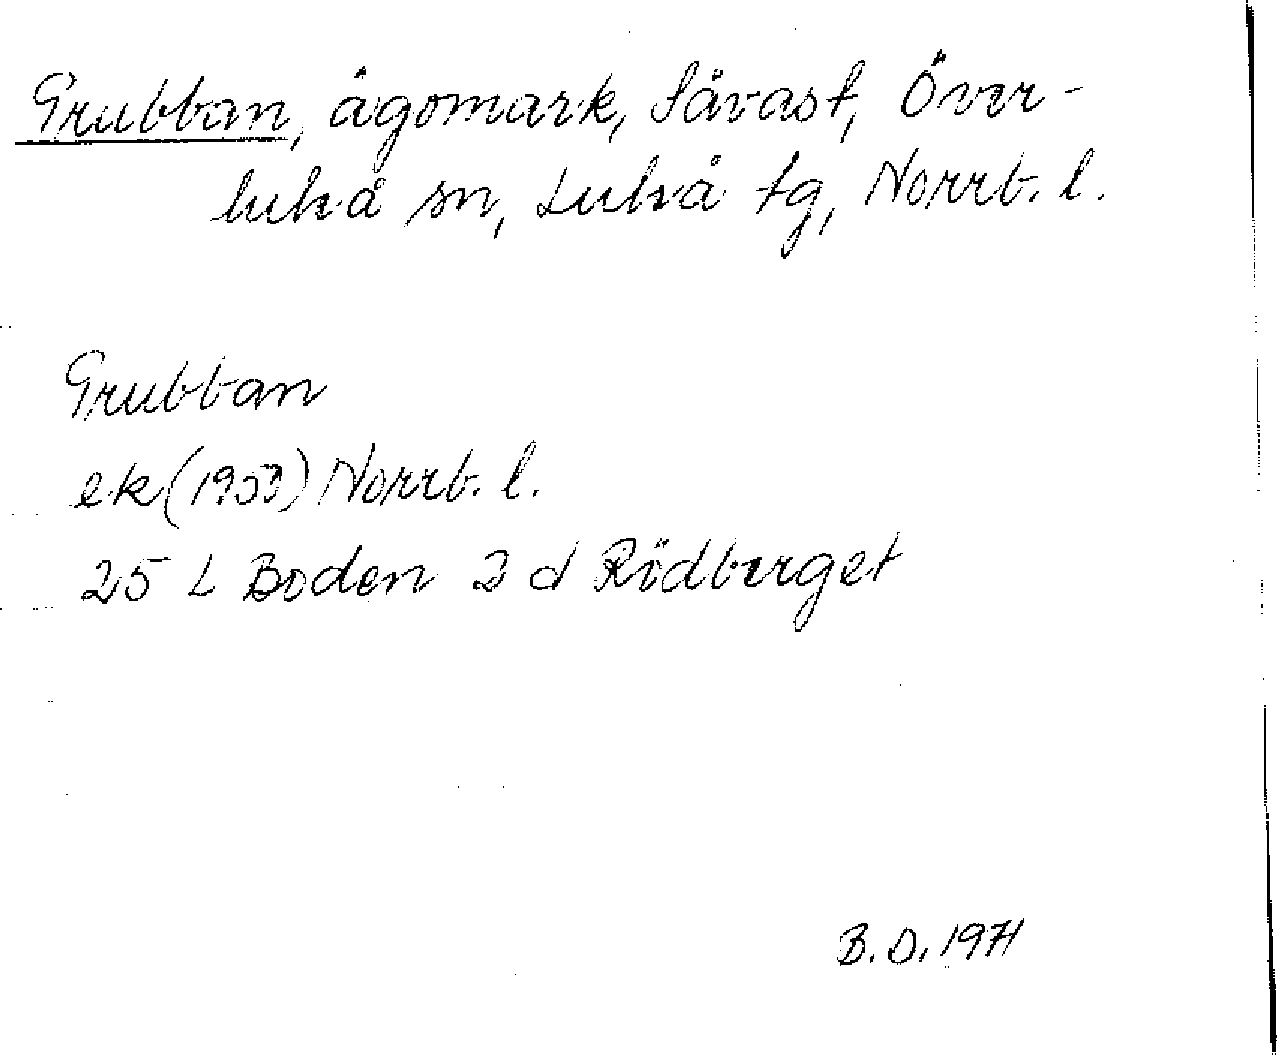 Grubban, ägomark, Sävast, Över-
luleå sn, Luleå tg, Norrb. l.
Grubban
ek (1953) Norrb. l.
25 L Boden 2 d Rödberget
B.D. 1971